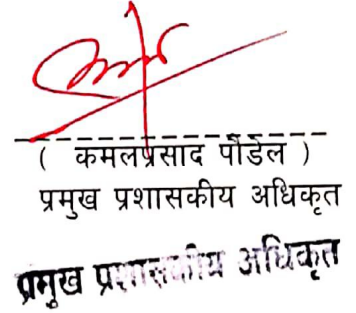 ( कमलप्रसाद पौडेल )
प्रमुख प्रशासकीय अधिकृत
प्रमुख प्रशासकीय अधिकृत